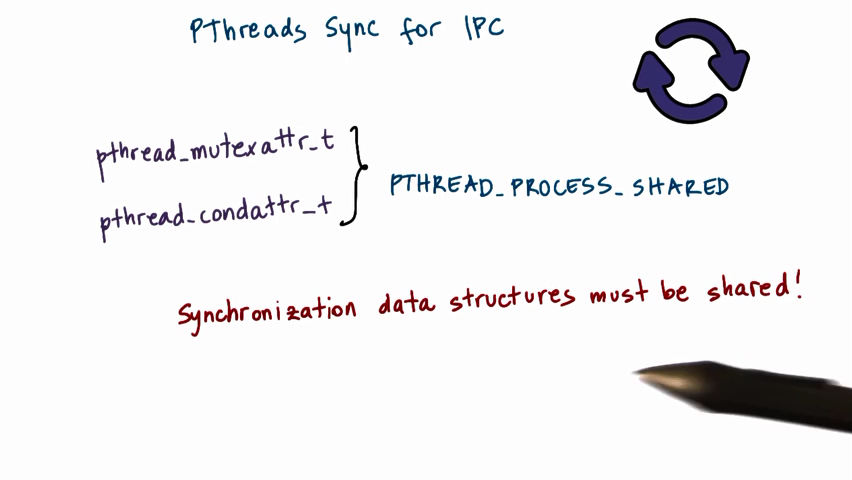 PThreads Sync for IPC
pthread_mutexattr_t
pthread_condattr_t
PTHREAD_PROCESS_SHARED
Synchronization data structures must be shared!